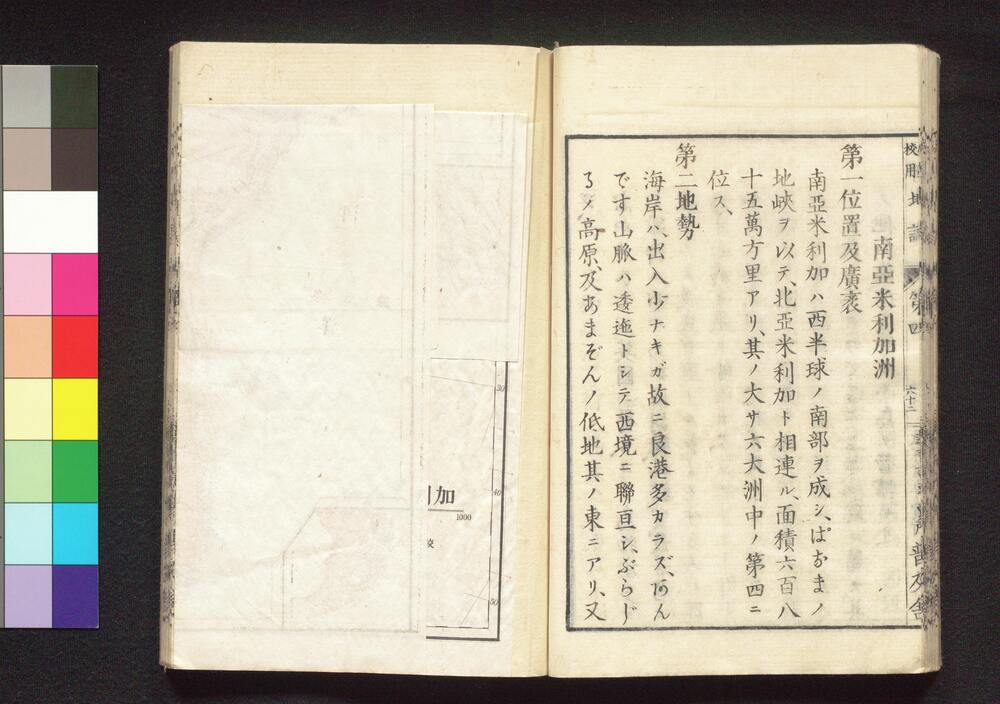 南亞米利加洲
第一位置及廣袤
南亞米利加ハ西半球ノ南部ヲ成シ、ぱなまノ
地峽ヲ以テ、北亞米利加ト相連ル、面積六百八
十五萬方里アリ、其ノ大サ六大洲中ノ第四ニ
位ス、
第二地勢
海岸ハ、出入少ナキガ故ニ良港多カラズ、あん
です山脈ハ逶迤トシテ西境ニ聯亘シ、ぶらじ
るノ高原、及あまぞんノ低地其ノ東ニアリ、又
校用地誌
第四
六十二
普及舍
加
1000
30
40
50